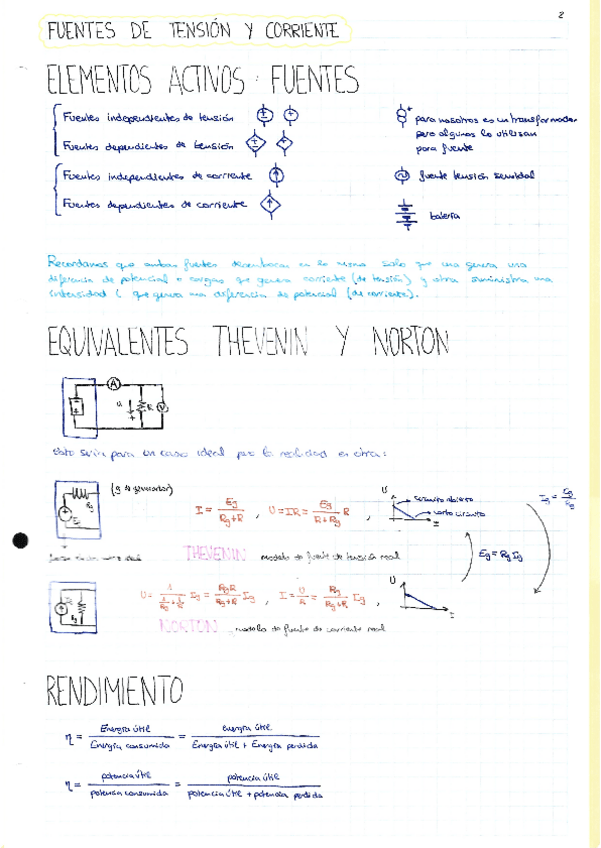 2
FUENTES DE TENSIÓN Y CORRIENTE
ELEMENTOS ACTIVOS: FUENTES
Fuentes independientes de tensión
Fuentes dependientes de tensión
Fuentes independientes de corriente
Fuentes dependientes de corriente
para nosotros es un transformador
pero algunos lo utilizan
para fuente
fuente tensión senoidal
batería
Recordamos que ambas fuentes desembocan en lo mismo solo que una genera una
diferencia de potencial o cargas que genera corriente (de tensión) y otra suministra una
intensidad I que genera una diferencia de potencial (de corriente).
EQUIVALENTES THEVENIN Y NORTON
A
U R V
Esto sería para un caso ideal pero la realidad es otra:
Rg
Eg
(g → generador)
I = Eg / (Rg+R) , U = IR = Eg / (R+Rg) R ,
U
circuito abierto
corto circuito
I
Ig = Eg / Rg
Eg = Rg Ig
THEVENIN modelo de fuente de tensión real
U = 1 / (1/Rg + 1/R) Ig = RgR / (Rg+R) Ig , I = U/R = Rg / (Rg+R) Ig ,
U
I
NORTON, modelo de fuente de corriente real
RENDIMIENTO
η = Energía útil / Energía consumida = energía útil / (Energía útil + Energía perdida)
η = potencia útil / potencia consumida = potencia útil / (potencia útil + potencia perdida)